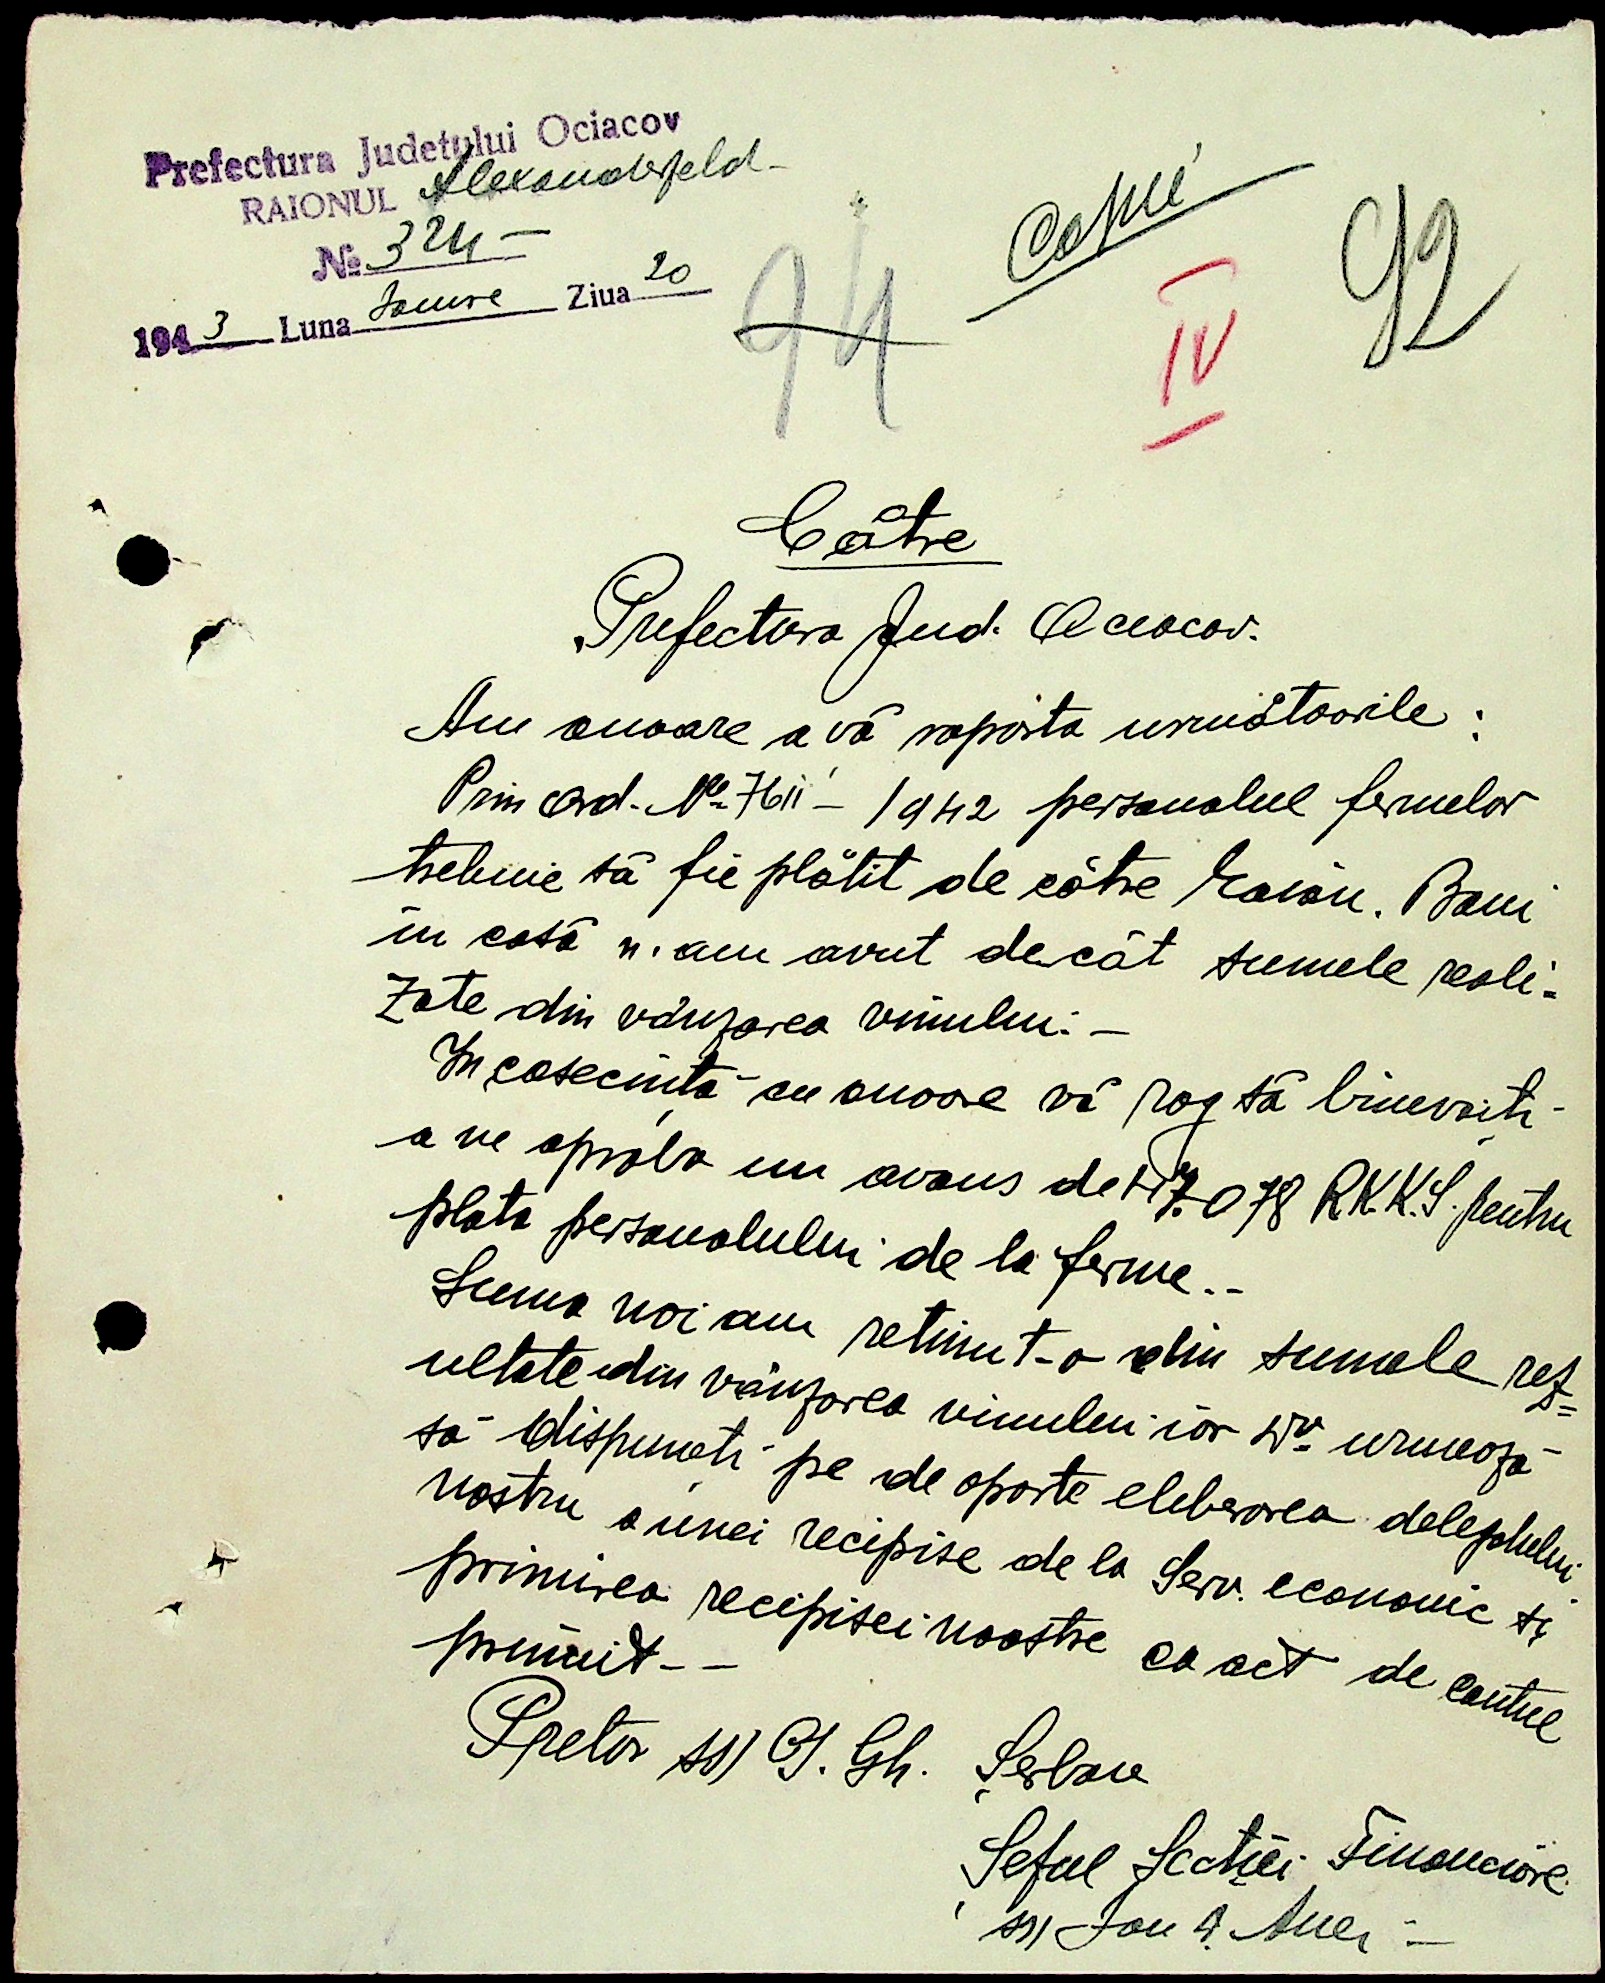 Prefectura Județului Ociacov
RAIONUL Alexanderfeld -
№ 324 -
1943 Luna Ianuarie Ziua 20
94
Copie
IV
92
Către
Prefectura Jud. Ociacov.
Am onoare a vă raporta următoarile :
Prin Ord. No 7611 - 1942 personalul fermelor
trebuie să fie plătit de către Raion. Bani
în casă n'am avut decât sumele reali=
zate din vânzarea vinului. -
In cosecință cu onoare vă rog să binevoiți
a ne aproba un avans de 47.078 R.K.K.S. pentru
plata personalului de la ferme. -
Suma noi am reținut-o din sumele rez=
ultate din vânzarea vinului iar Dv. urmează
să dispuneți pe de oparte eleberarea delegatului
nostru a unei recipise de la Serv. economic și
primirea recipisei noastre ca act de contul
primit - -
Pretor ss) Gh. Șerban
Șeful Secției Financiare
ss) Ion